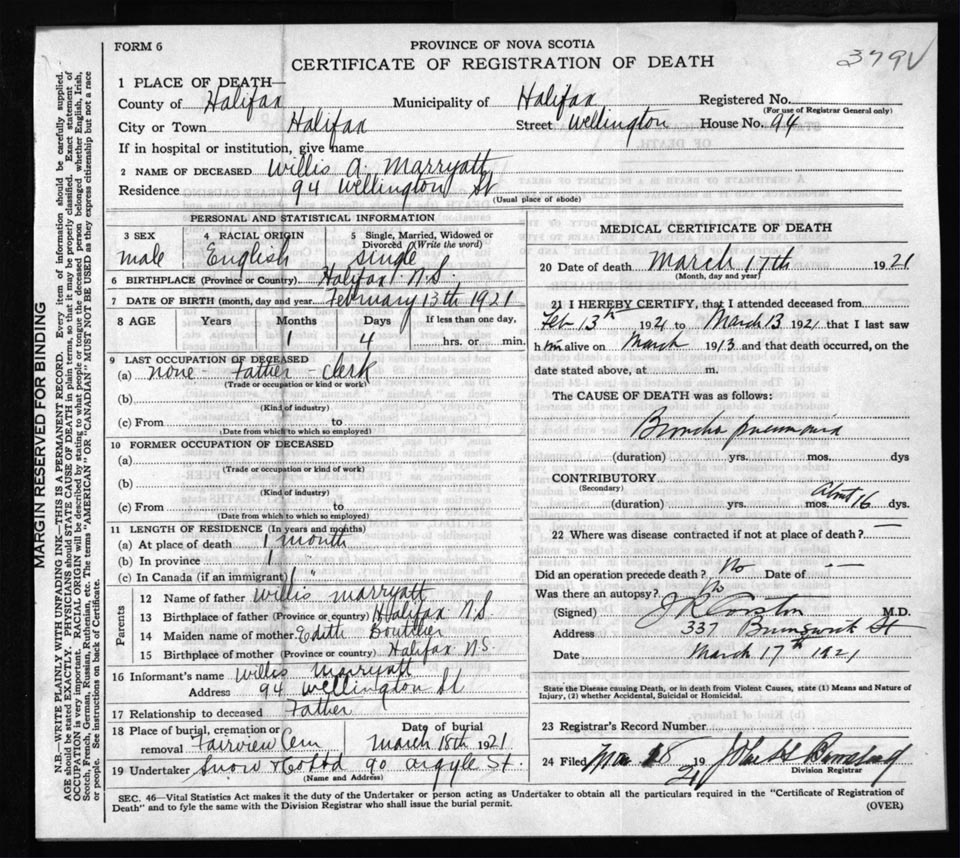 FORM 6
PROVINCE OF NOVA SCOTIA
CERTIFICATE OF REGISTRATION OF DEATH
379V
1 PLACE OF DEATH—
County of Halifax Municipality of Halifax Registered No.
(For use of Registrar General only)
City or Town Halifax Street Wellington House No. 94
If in hospital or institution, give name
2 NAME OF DECEASED Willis A. Marryatt
Residence 94 Wellington St
(Usual place of abode)
PERSONAL AND STATISTICAL INFORMATION
3 SEX 4 RACIAL ORIGIN 5 Single, Married, Widowed or Divorced (Write the word)
male English single
6 BIRTHPLACE (Province or Country) Halifax N.S.
7 DATE OF BIRTH (month, day and year) February 13th 1921
8 AGE Years Months Days If less than one day,
1 4 hrs. or min.
9 LAST OCCUPATION OF DECEASED
(a) none - Father - clerk
(Trade or occupation or kind of work)
(b)
(Kind of industry)
(c) From to
(Date from which to which so employed)
10 FORMER OCCUPATION OF DECEASED
(a)
(Trade or occupation or kind of work)
(b)
(Kind of industry)
(c) From to
(Date from which to which so employed)
11 LENGTH OF RESIDENCE (In years and months)
(a) At place of death 1 month
(b) In province 1 "
(c) In Canada (if an immigrant) 1 "
Parents
12 Name of father Willis Marryatt
13 Birthplace of father (Province or country) Halifax N.S.
14 Maiden name of mother Edith Boutilier
15 Birthplace of mother (Province or country) Halifax N.S.
16 Informant's name Willis Marryatt
Address 94 Wellington St
17 Relationship to deceased Father
18 Place of burial, cremation or removal Fairview Cem Date of burial March 18th 1921
19 Undertaker Snow & Co Ltd 90 Argyle St.
(Name and Address)
MEDICAL CERTIFICATE OF DEATH
20 Date of death March 17th 1921
(Month, day and year)
21 I HEREBY CERTIFY, that I attended deceased from
Feb 13th 1921 to March 13 1921 that I last saw
him alive on March 1913 and that death occurred, on the
date stated above, at m.
The CAUSE OF DEATH was as follows:
Broncho pneumonia
(duration) yrs. mos. dys
CONTRIBUTORY
(Secondary)
(duration) yrs. mos. about 16 dys.
22 Where was disease contracted if not at place of death? —
Did an operation precede death? No Date of —
Was there an autopsy? No
(Signed) J R Corston M.D.
Address 337 Brunswick St
Date March 17th 1921
State the Disease causing Death, or in death from Violent Causes, state (1) Means and Nature of
Injury, (2) whether Accidental, Suicidal or Homicidal.
23 Registrar's Record Number
24 Filed Mar 18 1921
Division Registrar
SEC. 46—Vital Statistics Act makes it the duty of the Undertaker or person acting as Undertaker to obtain all the particulars required in the "Certificate of Registration of
Death" and to fyle the same with the Division Registrar who shall issue the burial permit.
(OVER)
MARGIN RESERVED FOR BINDING
N.B.—WRITE PLAINLY WITH UNFADING INK—THIS IS A PERMANENT RECORD. Every item of information should be carefully supplied.
AGE should be stated EXACTLY. PHYSICIANS should STATE CAUSE OF DEATH in plain terms, so that it may be properly classified. Exact statement of
OCCUPATION is very important. RACIAL ORIGIN will be described by stating to what people or tongue the deceased person belonged whether English, Irish,
Scotch, French, German, Russian, Ruthenian, etc. The terms "AMERICAN" OR "CANADIAN" MUST NOT BE USED as they express citizenship but not a race
or people. See instructions on back of Certificate.